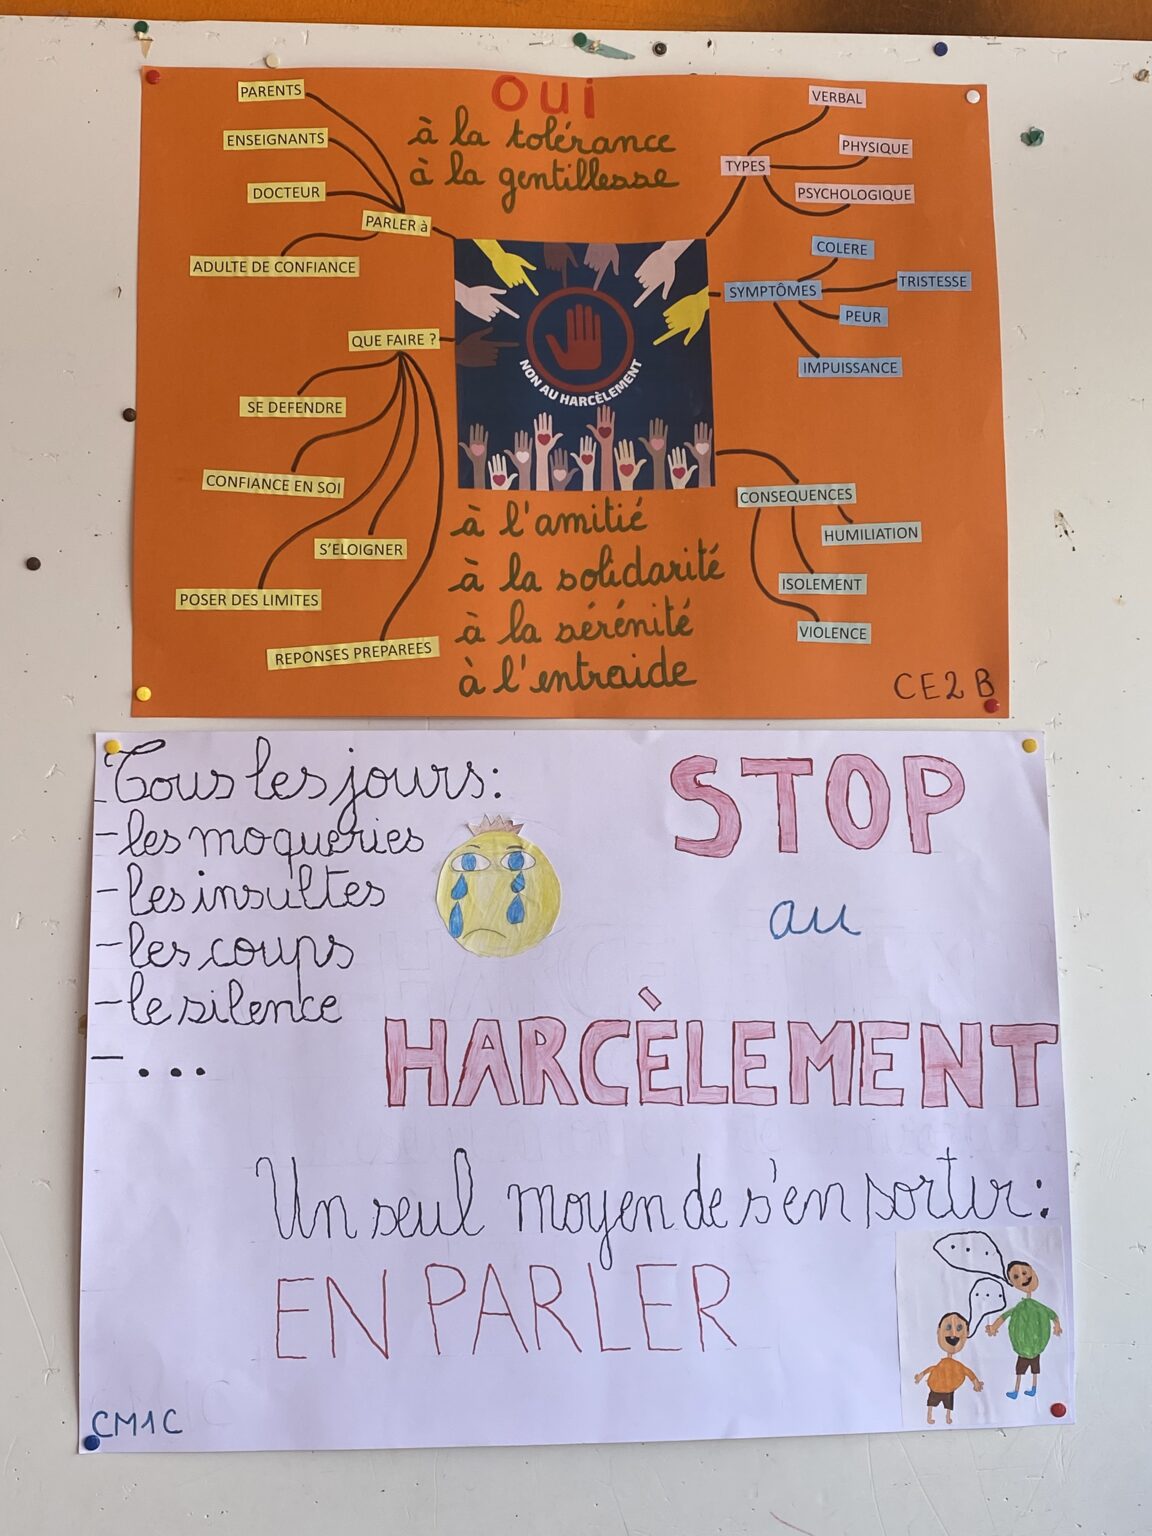 OUI
à la tolérance
à la gentillesse
PARENTS
ENSEIGNANTS
DOCTEUR
PARLER à
ADULTE DE CONFIANCE
QUE FAIRE ?
SE DEFENDRE
CONFIANCE EN SOI
S'ELOIGNER
POSER DES LIMITES
REPONSES PREPAREES
NON AU HARCÈLEMENT
VERBAL
TYPES
PHYSIQUE
PSYCHOLOGIQUE
COLERE
SYMPTÔMES
TRISTESSE
PEUR
IMPUISSANCE
CONSEQUENCES
HUMILIATION
ISOLEMENT
VIOLENCE
à l'amitié
à la solidarité
à la sérénité
à l'entraide
CE2 B
Tous les jours:
- les moqueries
- les insultes
- les coups
- le silence
- ...
STOP
au
HARCÈLEMENT
Un seul moyen de s'en sortir:
EN PARLER
...
...
CM1C